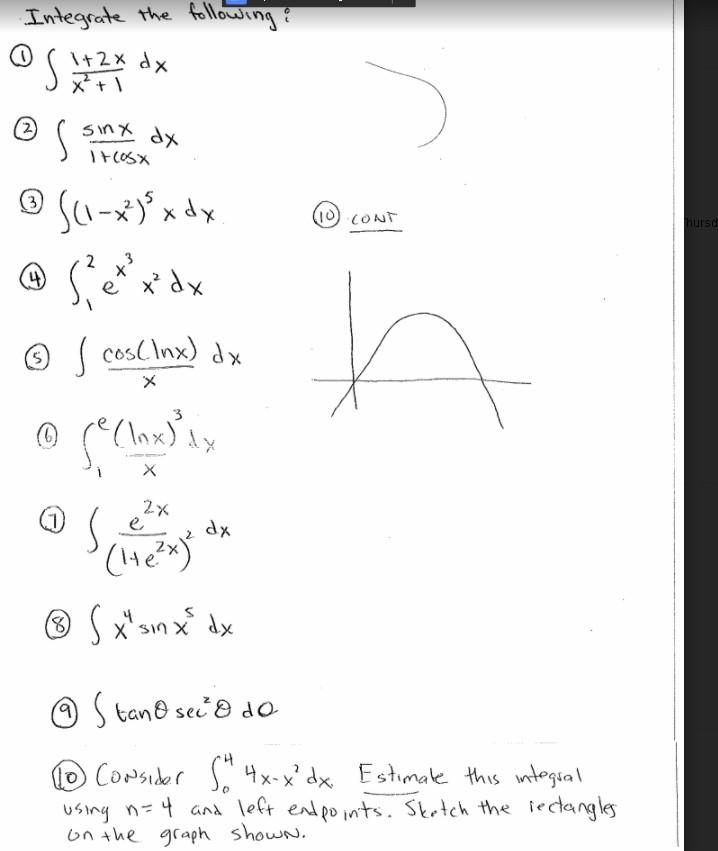 Integrate the following:
① ∫ (1+2x)/(x²+1) dx
② ∫ sinx/(1+cosx) dx
③ ∫(1-x²)⁵ x dx
④ ∫₁² e^(x³) x² dx
⑤ ∫ cos(lnx)/x dx
⑥ ∫₁ᵉ (lnx)³/x dx
⑦ ∫ e^(2x)/(1+e^(2x))² dx
⑧ ∫ x⁴ sin x⁵ dx
⑨ ∫ tanθ sec²θ dθ
⑩ Consider ∫₀⁴ 4x-x² dx. Estimate this integral
using n=4 and left endpoints. Sketch the rectangles
on the graph shown.
⑩ CONT
hursd